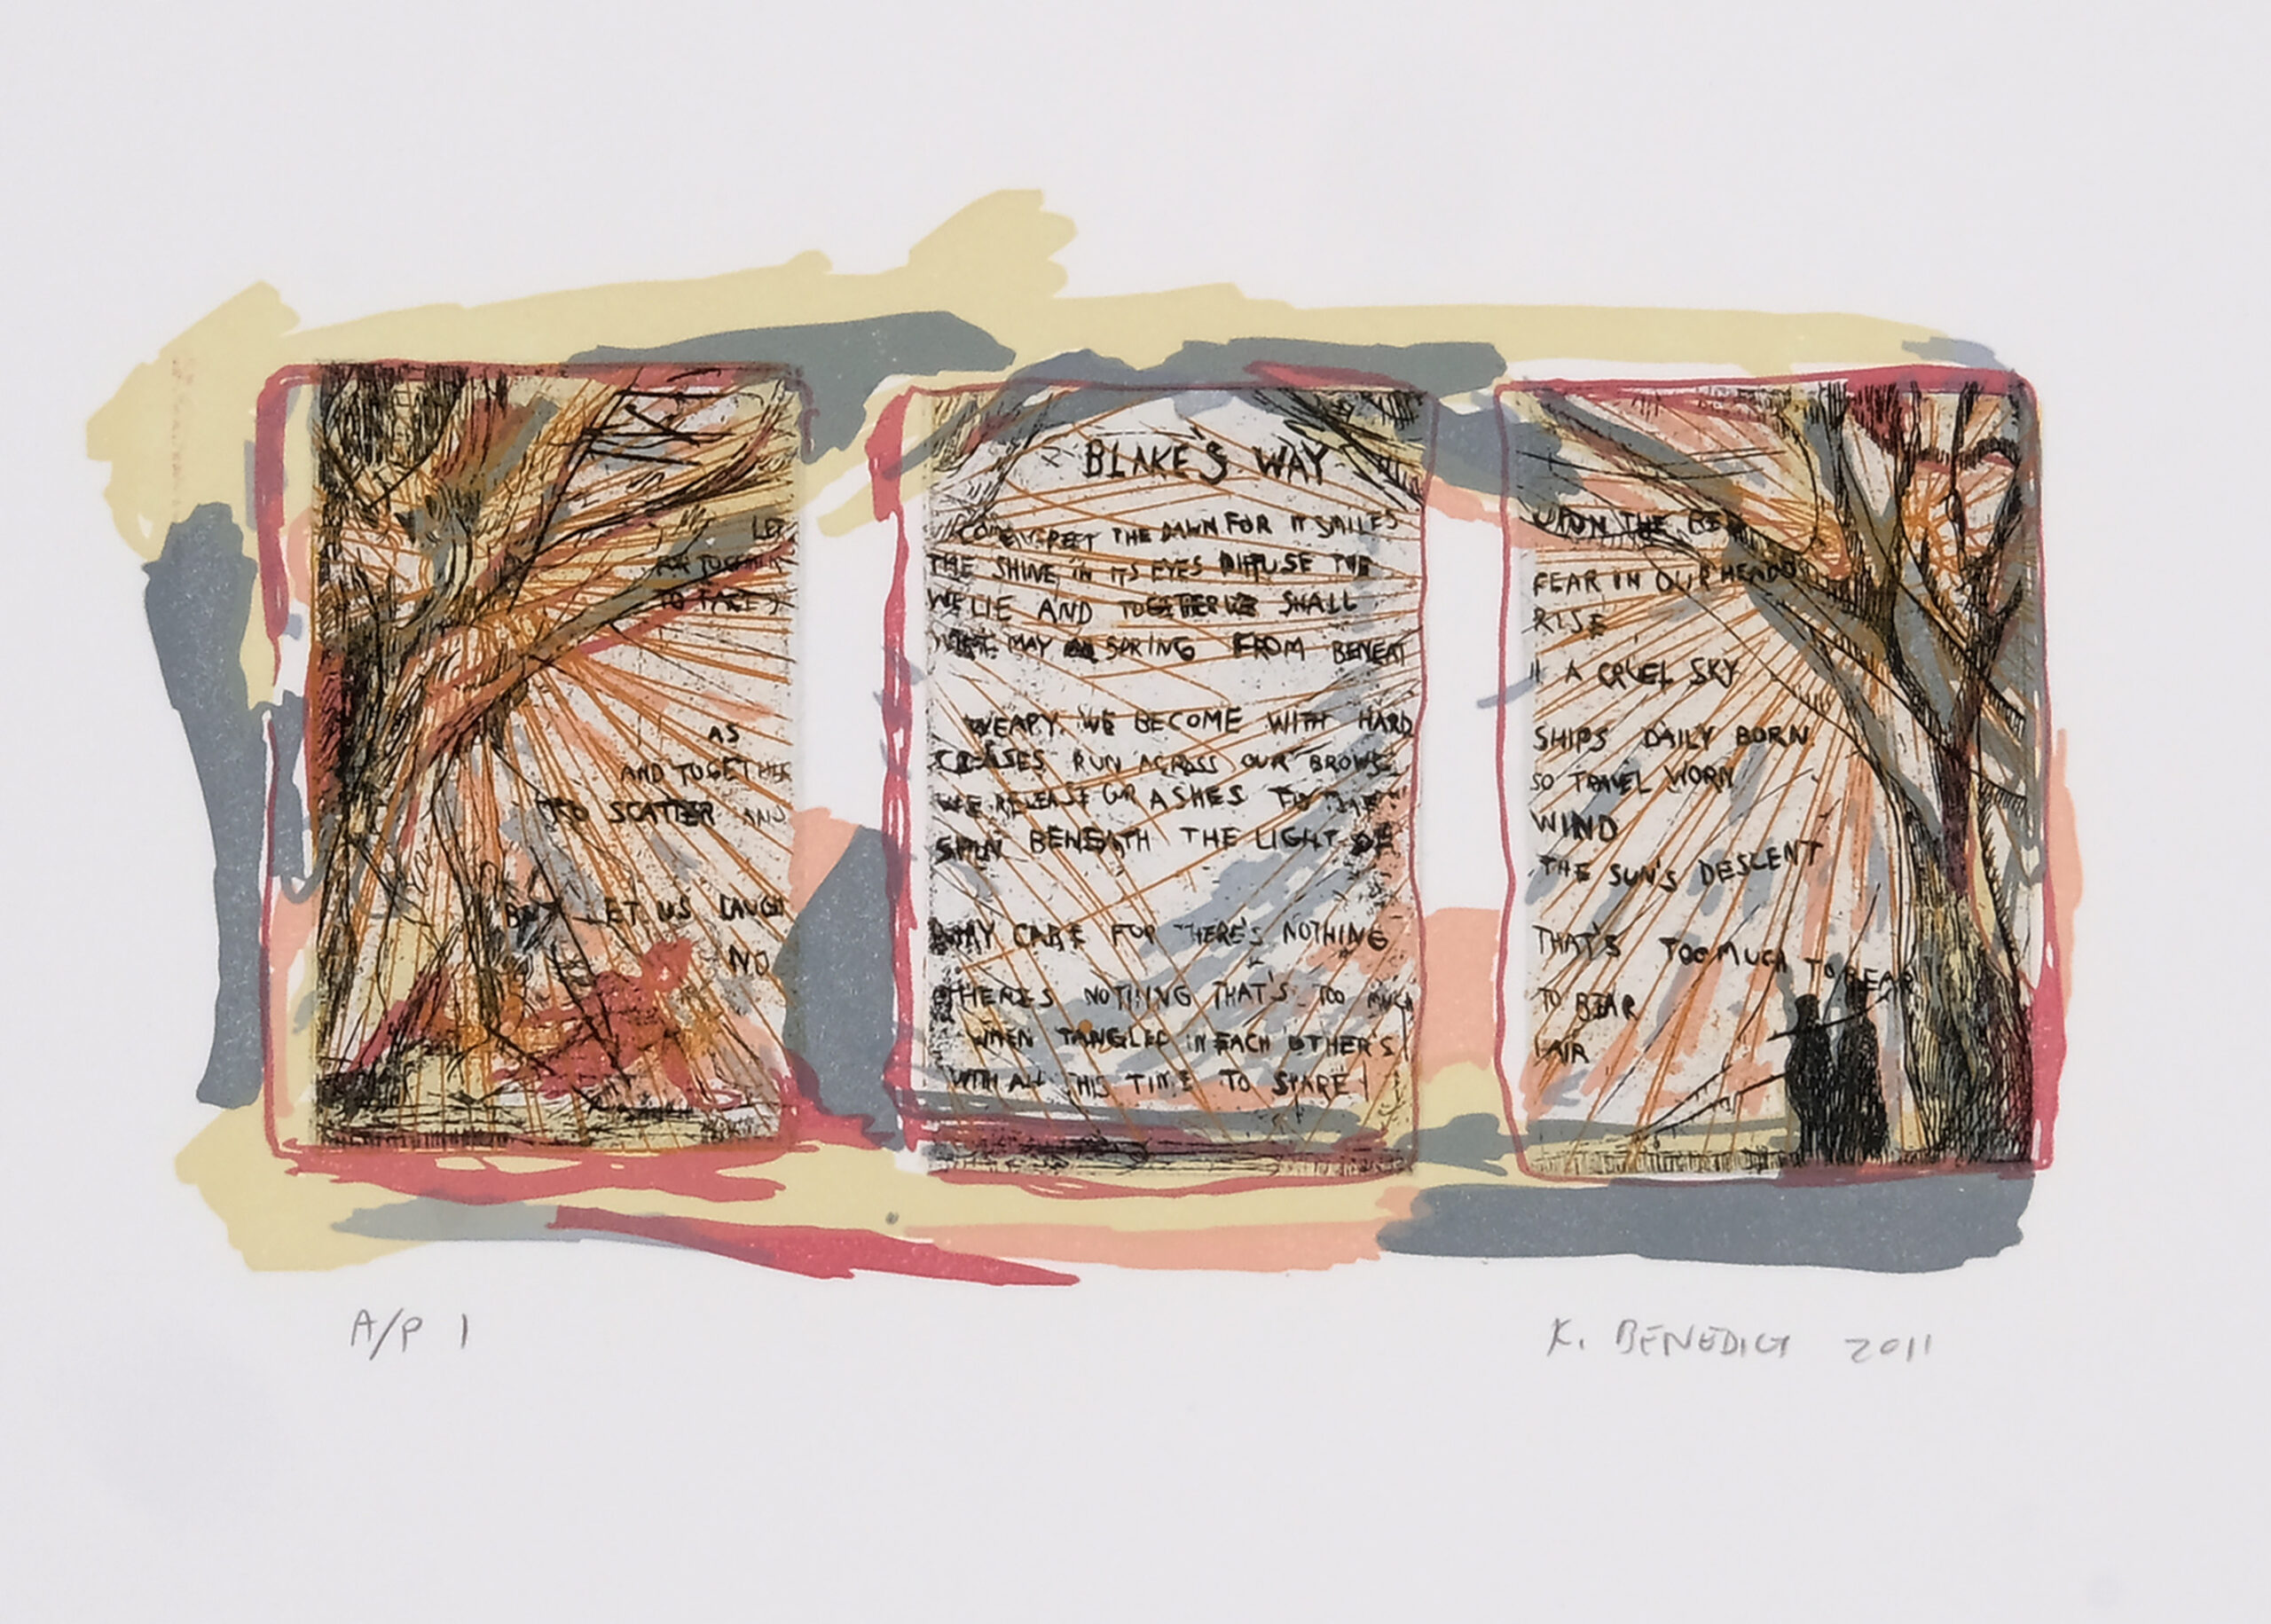 BLAKE'S WAY
LET
COME GREET THE DAWN FOR IT SMILES
UPON THE
TOGETHER
THE SHINE IN ITS EYES DIFFUSE THE
FEAR IN OUR HEADS
TO FACE
WE LIE AND TOGETHER WE SHALL
RISE
MAY SPRING FROM BENEAT
A CRUEL SKY
AS
WEARY WE BECOME WITH HARD
SHIPS DAILY BORN
AND TOGETHER
CREASES RUN ACROSS OUR BROWS
SO TRAVEL WORN
TO SCATTER AND
WE RELEASE OUR ASHES TO
WIND
SPIN BENEATH THE LIGHT OF
THE SUN'S DESCENT
BUT LET US LAUGH
AWAY CARE FOR THERE'S NOTHING
THAT'S TOO MUCH TO BEAR
NO
THERE'S NOTHING THAT'S TOO MUCH
TO BEAR
WHEN TANGLED IN EACH OTHER'S
AIR
WITH ALL THIS TIME TO SPARE
A/P 1
K. BENEDICT 2011